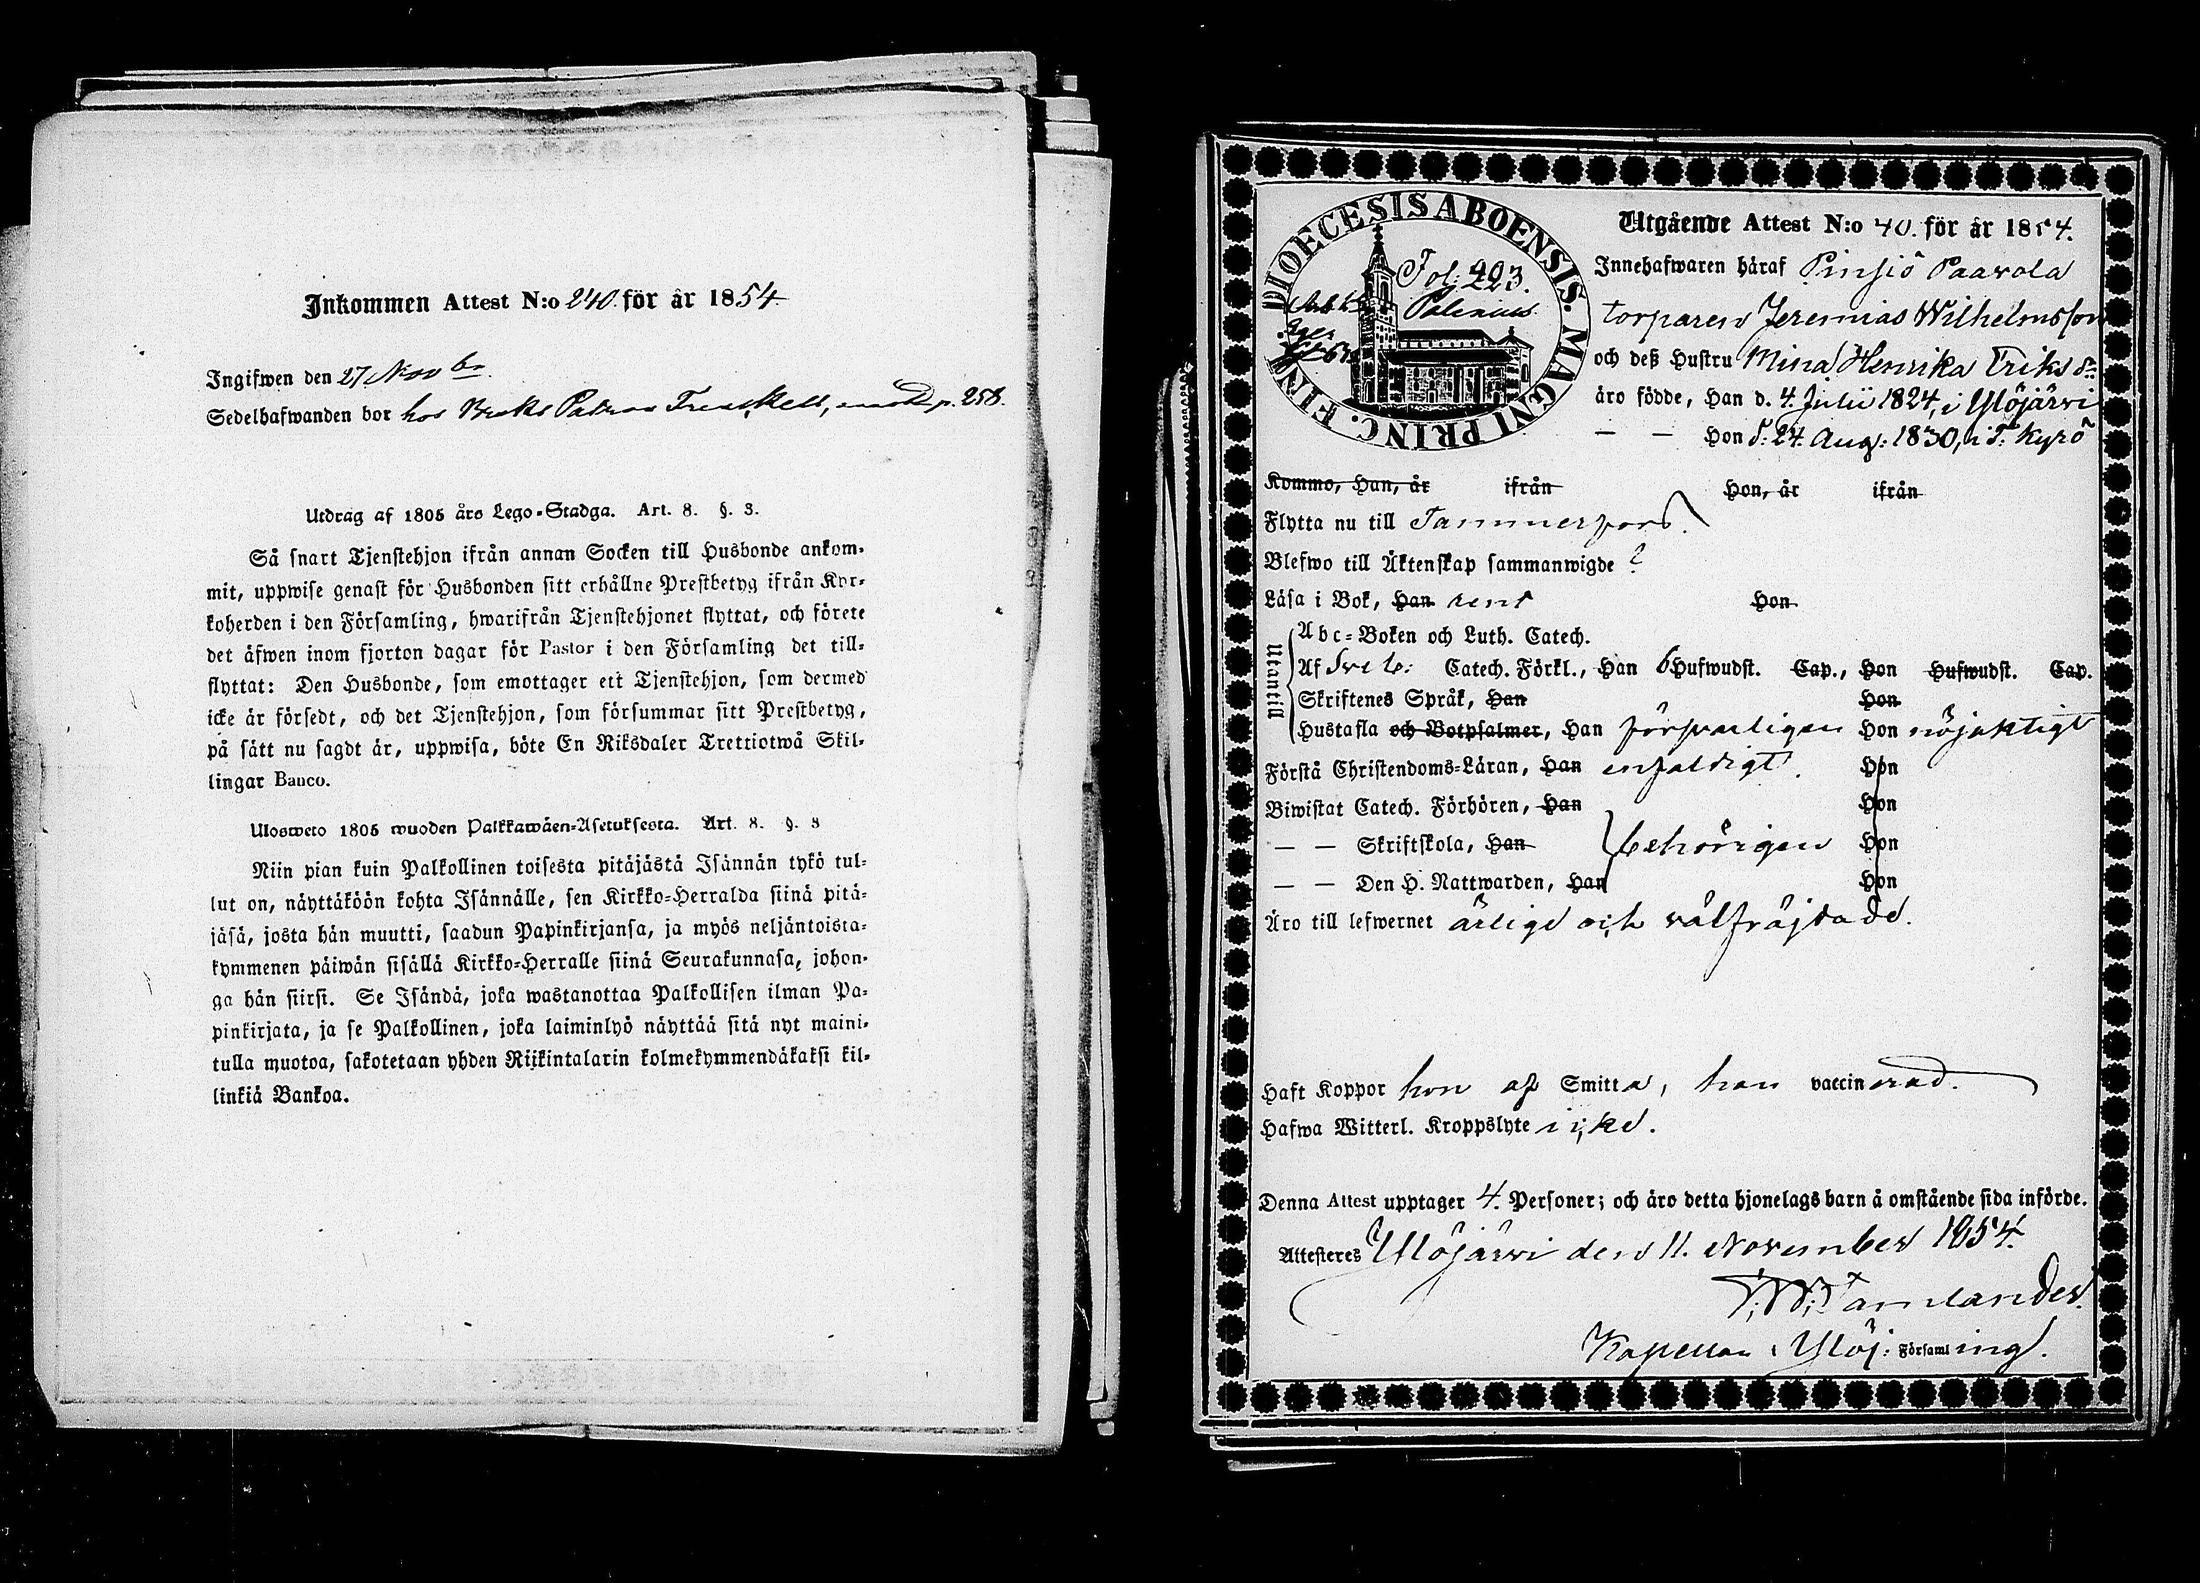 Inkommen Attest N:o 240 för år 1854
Ingifwen den 27 Novbr
Sedelhafwanden bor hos Bruks Patron Frenckell, p. 258.
Utdrag af 1805 års Lego-Stadga. Art. 8. §. 3.
Så snart Tjenstehjon ifrån annan Socken till Husbonde ankom-
mit, uppwise genast för Husbonden sitt erhållne Prestbetyg ifrån Kyr-
koherden i den Församling, hwarifrån Tjenstehjonet flyttat, och förete
det äfwen inom fjorton dagar för Pastor i den Församling det till-
flyttat: Den Husbonde, som emottager ett Tjenstehjon, som dermed
icke är försedt, och det Tjenstehjon, som försummar sitt Prestbetyg,
på sätt nu sagdt är, uppwisa, böte En Riksdaler Trettiotwå Skil-
lingar Banco.
Ulosweto 1805 wuoden Palkkawäen-Asetuksesta. Art. 8. §. 3
Niin pian kuin Palkollinen toisesta pitäjästä Isännän tykö tul-
lut on, näyttäköön kohta Isännälle, sen Kirkko-Herralda siinä pitä-
jäsä, josta hän muutti, saadun Papinkirjansa, ja myös neljäntoista-
kymmenen päiwän sisällä Kirkko-Herralle siinä Seurakunnasa, johon-
ga hän siirsi. Se Isändä, joka wastanottaa Palkollisen ilman Pa-
pinkirjata, ja se Palkollinen, joka laiminlyö näyttää sitä nyt maini-
tulla muotoa, sakotetaan yhden Riikintalarin kolmekymmendäkaksi kil-
linkiä Bankoa.
DIOECESIS ABOENSIS. MAGNI PRINC. FINL.
Fol: 223.
Palenius.
Utgående Attest N:o 40. för år 1854.
Innehafwaren häraf Pinsiö Paavola
torparen Jeremias Wilhelmsson
och deß Hustru Mina Henrika Eriks dr
äro födde, Han d. 4 Julii 1824, i Ylöjärvi
— — Hon d: 24 Aug: 1830, i T: Kyrö
Kommo, Han, år ifrån Hon, år ifrån
Flytta nu till Tammerfors.
Blefwo till Äktenskap sammanwigde ?
Läsa i Bok, Han rent Hon
Utantill
Abc-Boken och Luth. Catech.
Af Sveb: Catech. Förkl., Han 6 Hufwudst. Cap., Hon Hufwudst. Cap.
Skriftenes Språk, Han Hon
Hustafla och Botpsalmer, Han försvarligen Hon nöjaktigt
Förstå Christendoms-Läran, Han enfaldigt. Hon
Biwistat Catech. Förhören, Han Hon
— — Skriftskola, Han behörigen Hon
— — Den H. Nattwarden, Han Hon
Äro till lefwernet ärlige och välfräjdade.
Haft Koppor hon af Smitta, han vaccinerad.
Hafwa Witterl. Kroppslyte icke.
Denna Attest upptager 4. Personer; och äro detta hjonelags barn å omstående sida införde.
Attesteres Ylöjärvi den 11. November 1854.
Kapellan i Ylöj: Församling.